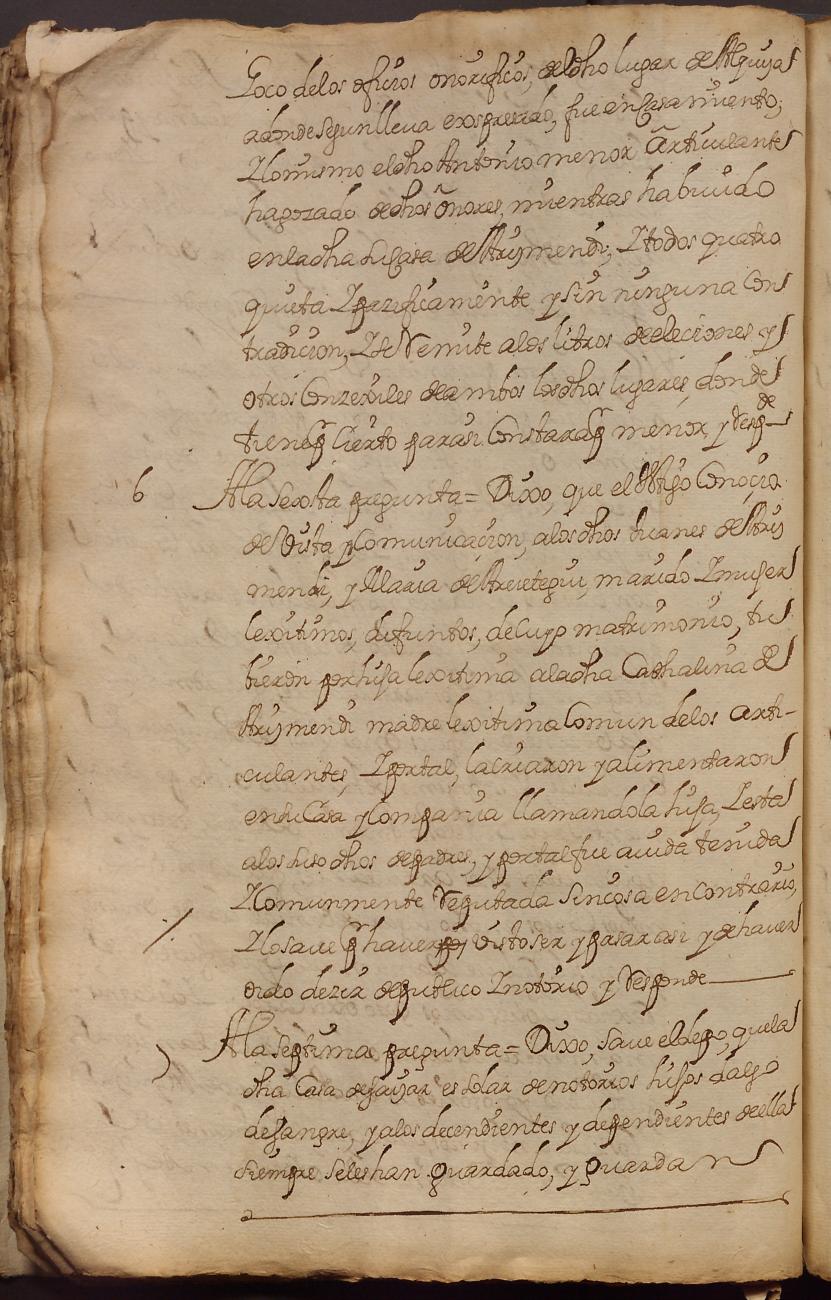 Goço delos ofiçios onorificos, del dho lugar de Alquiça
adonde segun lleva expresado, fue en Casamiento;
Y lo mismo el dho Antonio menor Articulante
ha gozado de dhos onores, mientras ha bivido
en la dha su Casa de Arismendi, Y todos quatro
quieta Y pazificamente y sin ninguna Con
tradicion, Y se Remite alos litros de eleciones y
otros Conzexiles de ambos los dhos lugares, donde
tiene Cierto para si Constara menor y Resp de
6 Ala Sexsta pregunta = Dixo, que el testigo Conoçio
de Vista y Comunicaçion, alos dhos Juanes de Aris
mendi, y Maria de Arreitegui, marido Y muger
lexitimos, difuntos, de cuyo matrimonio, tu
bieron por hija lexitima ala dha Cathalina de
Arismendi madre lexitima Comun delos arti-
culantes, Y por tal, la criaron y alimentaron
en su Casa y Compañia llamandola hija, Y esta
alos suso dhos de padres, y por tal fue avida tenida
Y Comunmente Reputada sin cosa en Contrario,
Y lo save haver visto ser y pasar asi y de haver
oido dezir de publico Y notorio y Responde
7 Ala Septima pregunta = Dixo, save el depo, que la
dha Casa de saizar es solar de notorios hijos dalgo
de sangre, y alos decendientes y dependientes de ella
siempre se les han guardado, y guardan